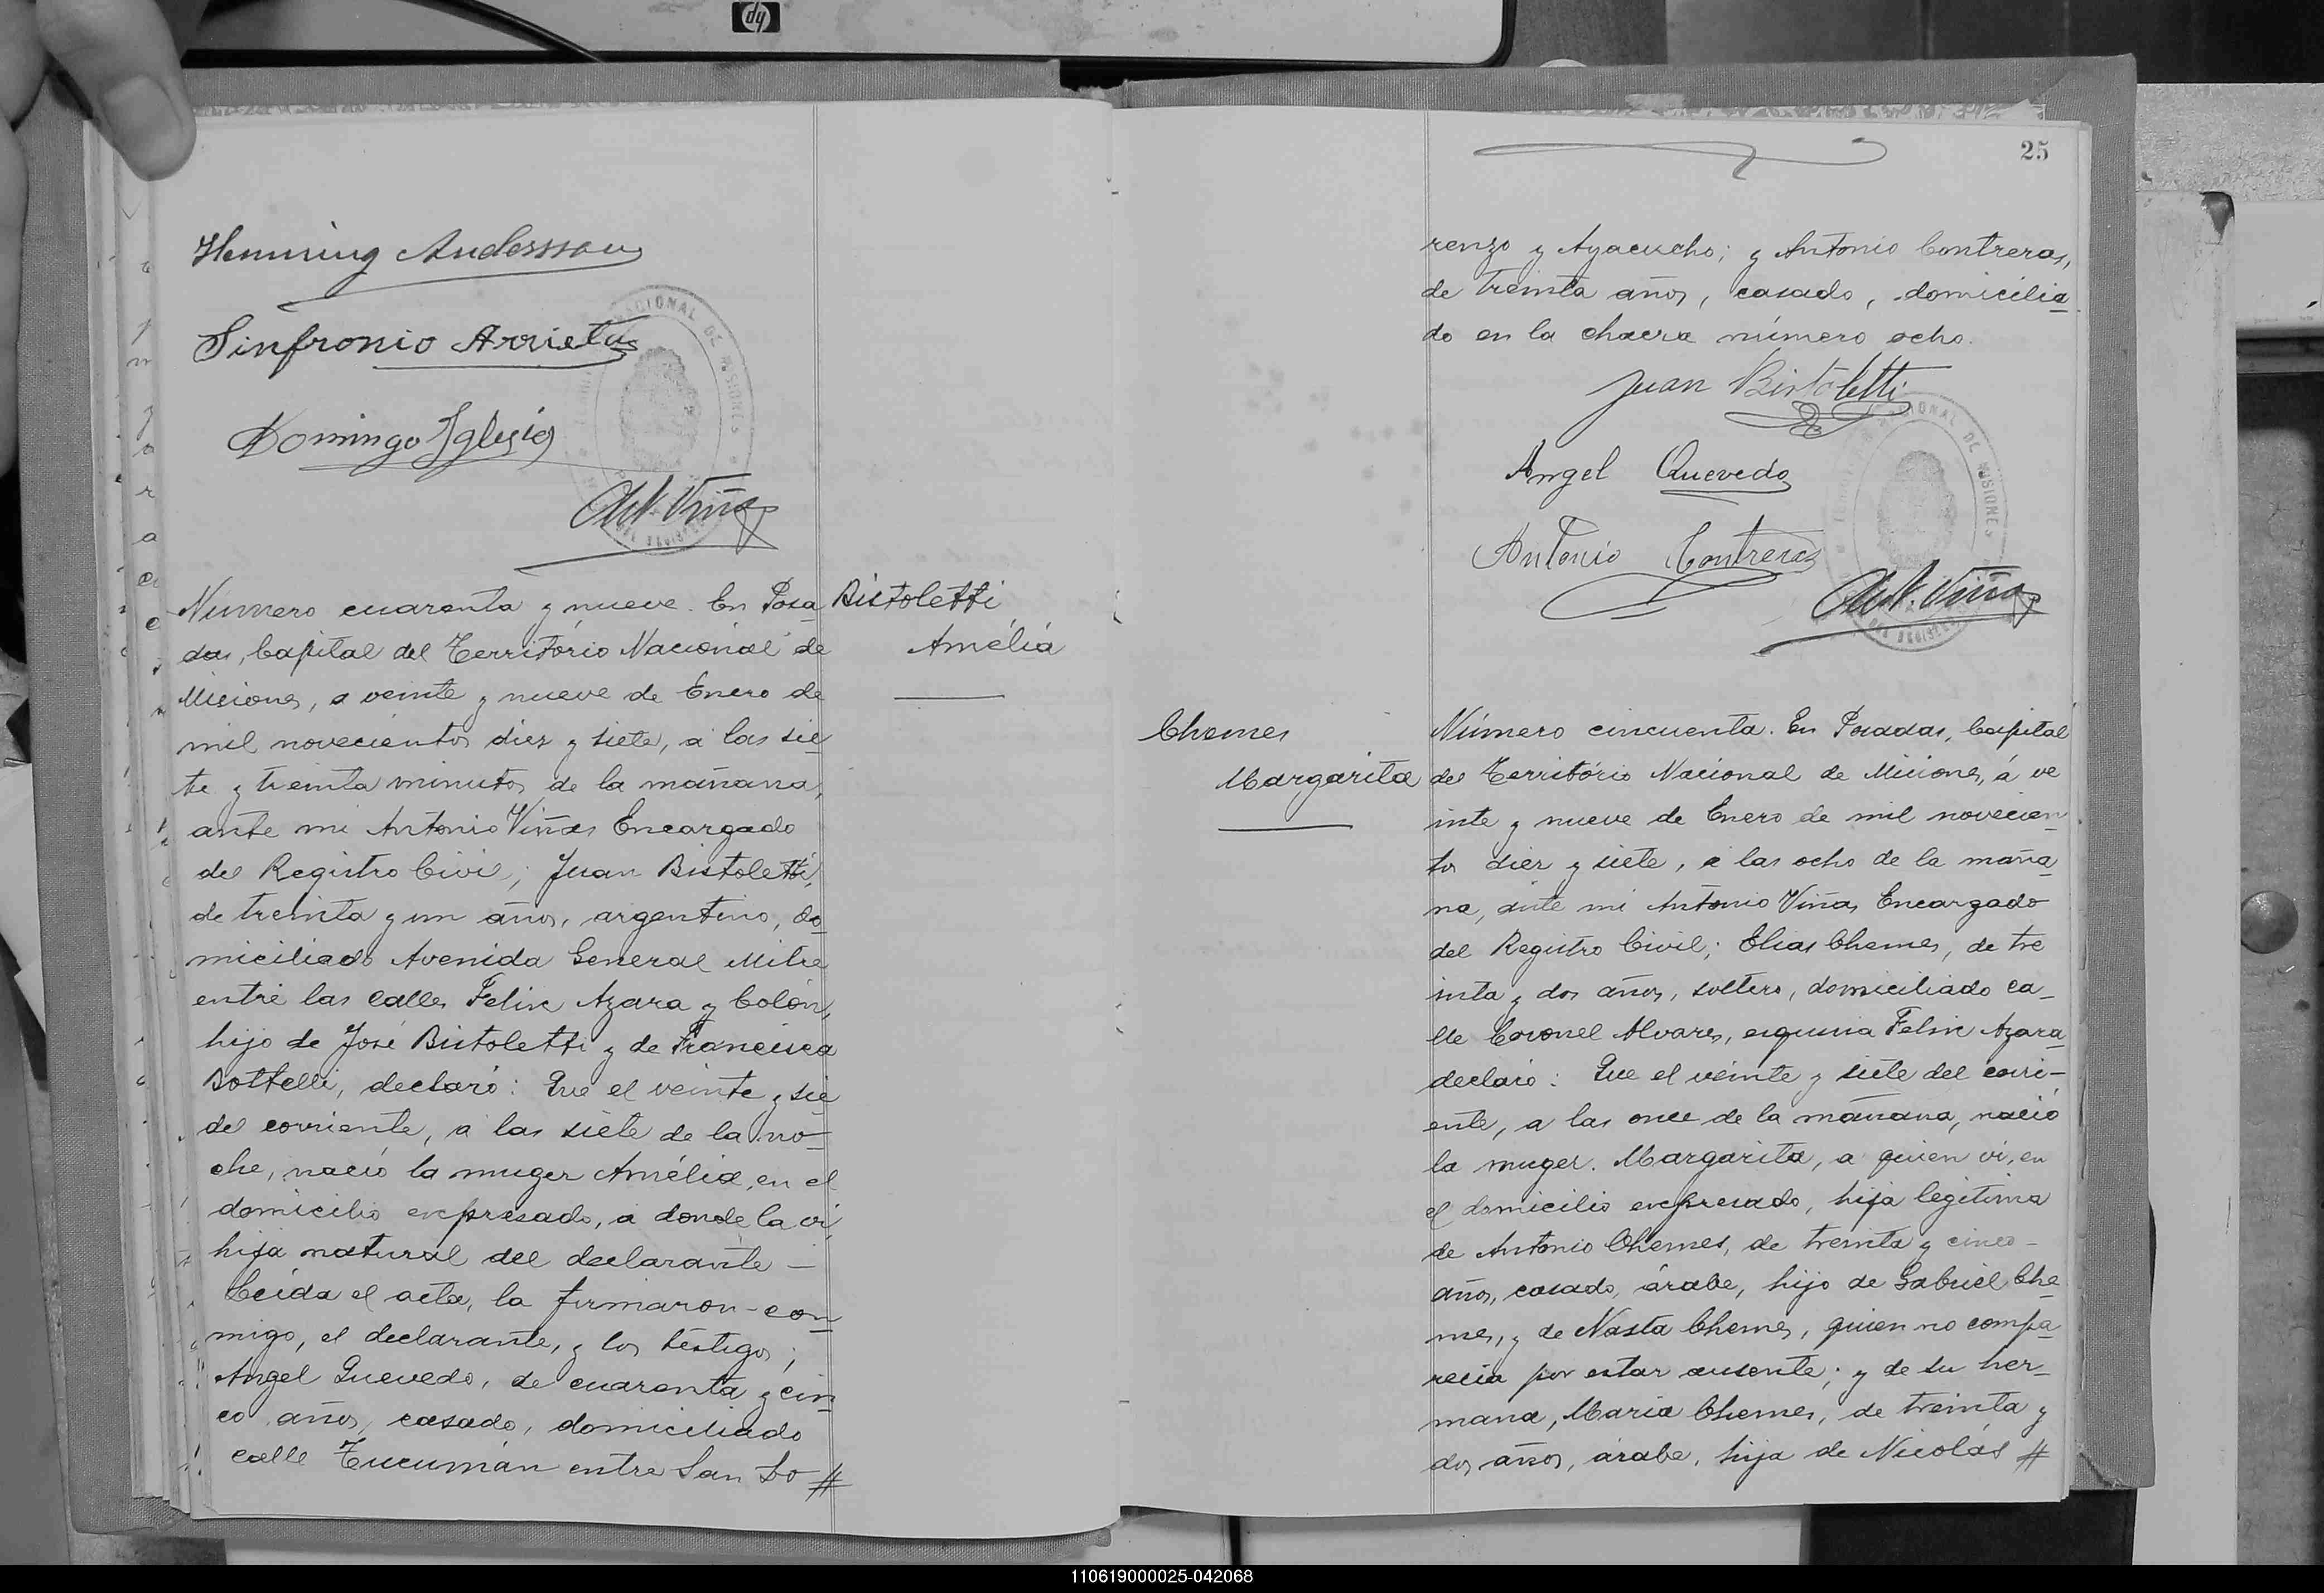 hp
Henning Andersson
Sinfronio Arrieta
Domingo Iglesias
Ant. Viñas
Número cuarenta y nueve. En Posa
das, Capital del Território Nacional de
Misiones, a veinte y nueve de Enero de
mil novecientos diez y siete, a las sie
te y treinta minutos de la mañana,
ante mi Antonio Viñas Encargado
del Registro Civil; Juan Bistoletti,
de treinta y un años, argentino, do
miciliado Avenida General Mitre
entre las calles Felix Azara y Colón,
hijo de José Bistoletti y de Francisca
Bottelli, declaró: Que el veinte y sie
del corriente, a las siete de la no-
che, nació la muger Amélia, en el
domicilio expresado, a donde la vi,
hija natural del declarante —
Leida el acta, la firmaron con
migo, el declarante, y los testigos;
Angel Quevedo, de cuarenta y cin
co años, casado, domiciliado
calle Tucumán entre San Lo #
Bistoletti
Amélia
25
renzo y Ayacucho; y Antonio Contreras,
de treinta años, casado, domicilia
do en la chacra número ocho.
Juan Bistoletti
Angel Quevedo
Antonio Contreras
Ant. Viñas
Chemes
Margarita
Número cincuenta. En Posadas, Capital
del Território Nacional de Misiones, á ve
inte y nueve de Enero de mil novecien
tos diez y siete, a las ocho de la maña
na, ante mi Antonio Viñas Encargado
del Registro Civil; Elias Chemes, de tre
inta y dos años, soltero, domiciliado ca-
lle Coronel Alvares, esquina Felix Azara
declaró: Que el veinte y siete del corri-
ente, a las once de la mañana, nació
la muger. Margarita, a quien vi, en
el domicilio expresado, hija legitima
de Antonio Chemes, de treinta y cinco-
años, casado, árabe, hijo de Gabriel Che
mes, y de Nasta Chemes, quien no compa
recia por estar ausente; y de su her-
mana, Maria Chemes, de treinta y
dos años, árabe, hija de Nicolás #
110619000025-042068